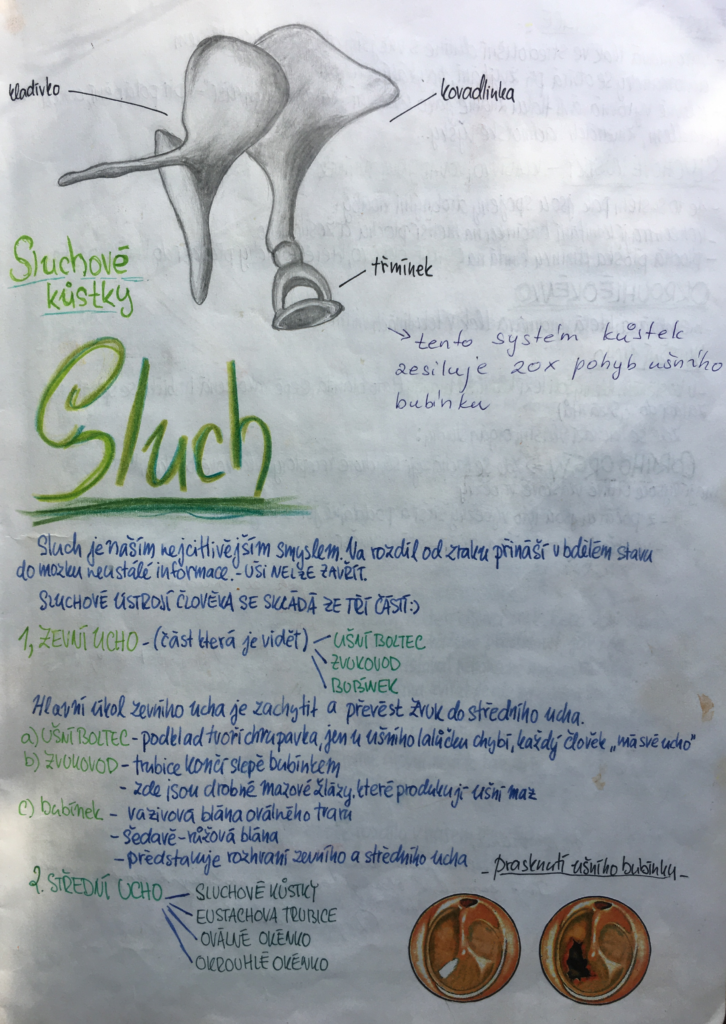 kladívko
kovadlinka
Sluchové
kůstky
třmínek
→ tento systém kůstek
zesiluje 20x pohyb ušního
bubínku
Sluch
Sluch je naším nejcitlivějším smyslem. Na rozdíl od zraku přináší v bdělém stavu
do mozku neustálé informace. - UŠI NELZE ZAVŘÍT.
SLUCHOVÉ ÚSTROJÍ ČLOVĚKA SE SKLÁDÁ ZE TŘÍ ČÁSTÍ:)
1, ZEVNÍ UCHO - (část která je vidět) - UŠNÍ BOLTEC
ZVUKOVOD
BUBÍNEK
Hlavní úkol zevního ucha je zachytit a převést zvuk do středního ucha.
a) UŠNÍ BOLTEC - podklad tvoří chrupavka, jen u ušního lalůčku chybí, každý člověk „má své ucho"
b) ZVUKOVOD - trubice končí slepě bubínkem
- zde jsou drobné mazové žlázy, které produkují ušní maz
c) bubínek - vazivová blána oválného tvaru
- šedavě-růžová blána
- představuje rozhraní zevního a středního ucha
- prasknutí ušního bubínku -
2. STŘEDNÍ UCHO - SLUCHOVÉ KŮSTKY
EUSTACHOVA TRUBICE
OVÁLNÉ OKÉNKO
OKROUHLÉ OKÉNKO